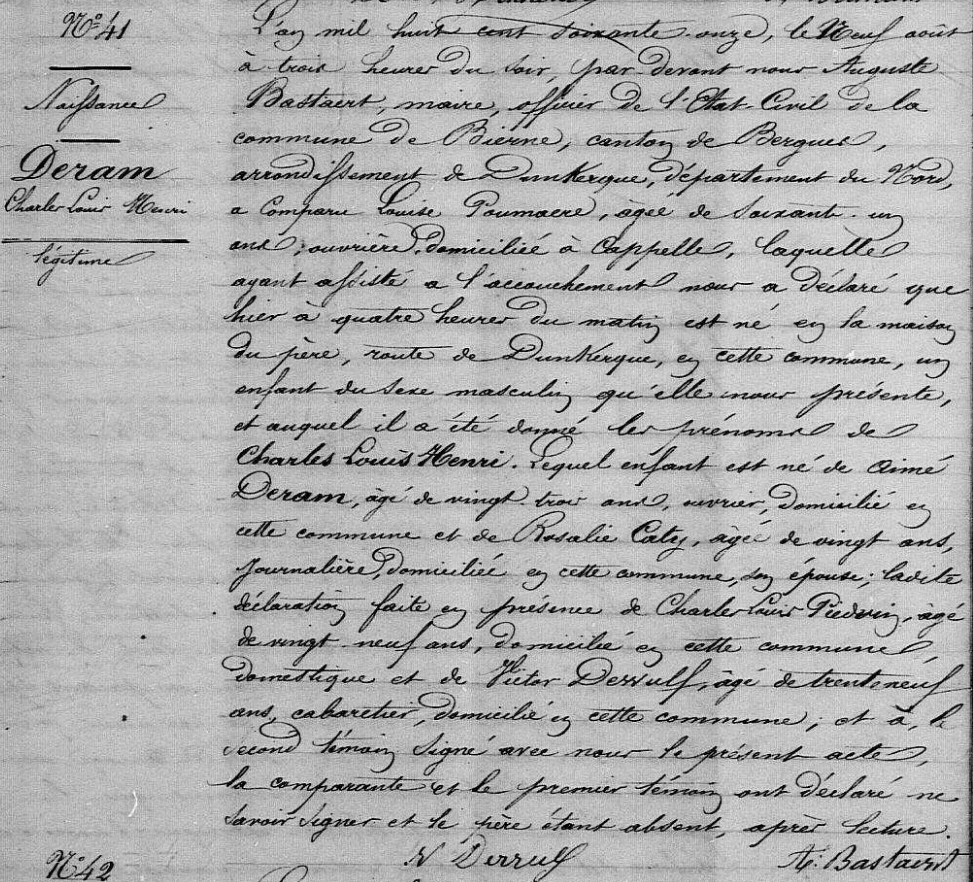 N° 41
Naissance
Deram
Charles Louis Henri
légitime
L'an mil huit cent soixante onze, le Neuf août
à trois heures du soir, par devant nous Auguste
Bastaert, maire, officier de l'Etat-Civil de la
commune de Bierne, canton de Bergues,
arrondissement de Dunkerque, département du Nord,
a comparu Louise Poumaere, âgée de soixante un
ans, ouvrière, domiciliée à Cappelle, laquelle
ayant assisté a l'accouchement nous a déclaré que
hier à quatre heures du matin est né en la maison
du père, route de Dunkerque, en cette commune, un
enfant du sexe masculin qu'elle nous présente,
et auquel il a été donné les prénoms de
Charles Louis Henri. Lequel enfant est né de Aimé
Deram, âgé de vingt trois ans, ouvrier, domicilié en
cette commune et de Rosalie Caty, âgée de vingt ans,
journalière, domiciliée en cette commune, son épouse; ladite
déclaration faite en présence de Charles Louis Piedvin, âgé
de vingt neuf ans, domicilié en cette commune,
domestique et de Victor Dewulf, âgé de trente neuf
ans, cabaretier, domicilié en cette commune; et à, le
second témoin signé avec nous le présent acte,
la comparante et le premier témoin ont déclaré ne
savoir signer et le père étant absent, après lecture.
V Dewulf
A. Bastaert
N° 42